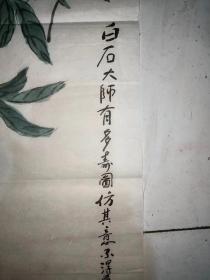 白石大師有多壽圖仿其意不得